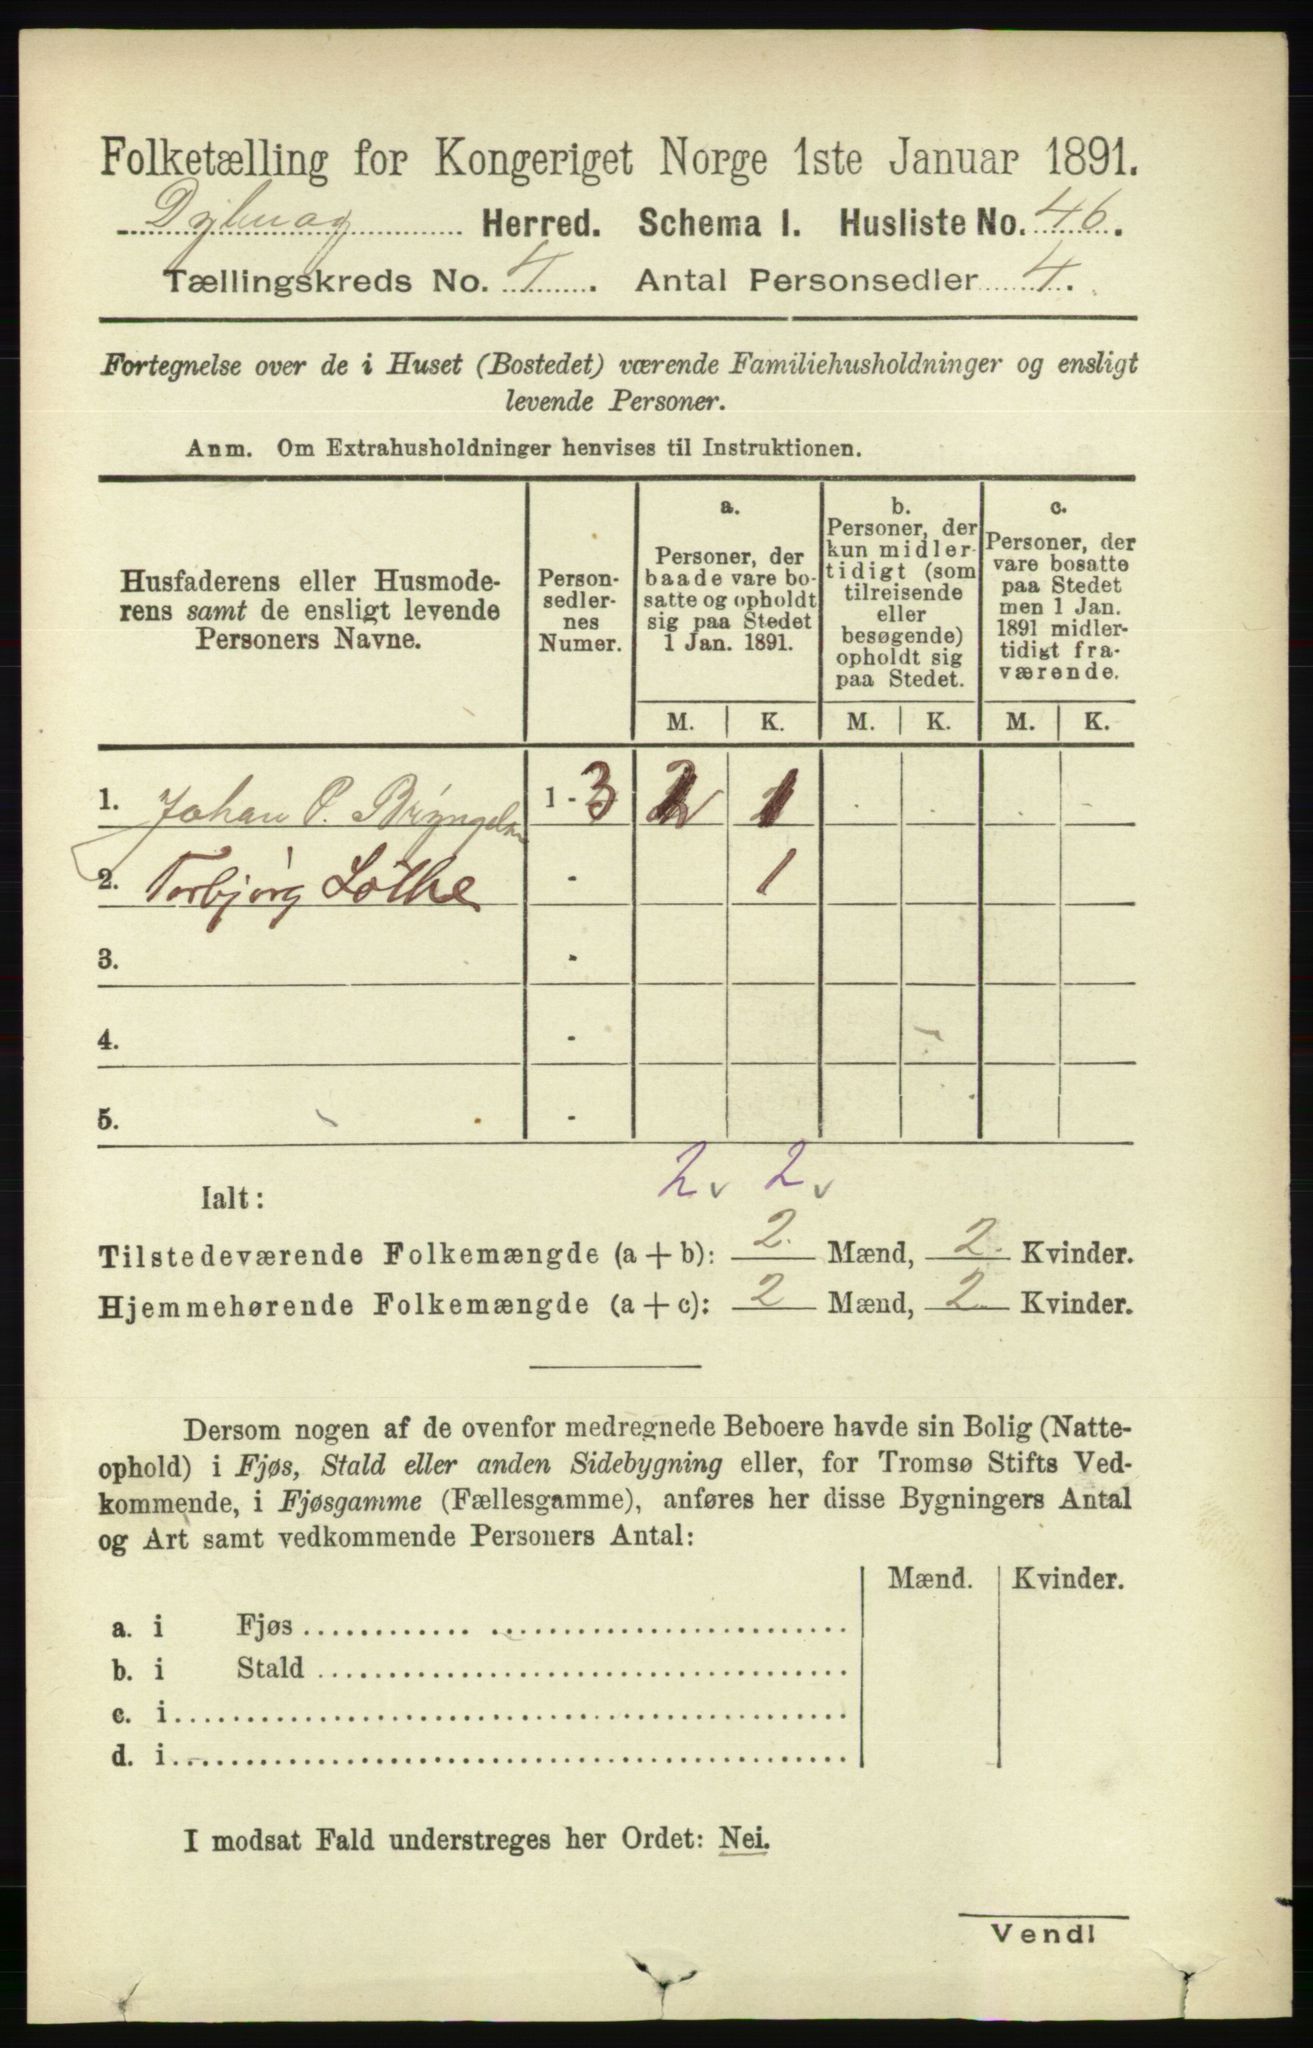 Folketælling for Kongeriget Norge 1ste Januar 1891.
Dybvaag Herred. Schema I. Husliste No. 46.
Tællingskreds No. 4. Antal Personsedler 4.
Fortegnelse over de i Huset (Bostedet) værende Familiehusholdninger og ensligt
levende Personer.
Anm. Om Extrahusholdninger henvises til Instruktionen.
Husfaderens eller Husmode-
rens samt de ensligt levende
Personers Navne.
Person-
sedler-
nes
Numer.
a.
Personer, der
baade vare bo-
satte og opholdt
sig paa Stedet
1 Jan. 1891.
b.
Personer, der
kun midler-
tidigt (som
tilreisende
eller
besøgende)
opholdt sig
paa Stedet.
c.
Personer, der
vare bosatte
paa Stedet
men 1 Jan.
1891 midler-
tidigt fra-
værende.
M. K. M. K. M. K.
1. Johan P. Bryngels 1 - 3 2 1
2. Torbjørg Lothe - 1
3. -
4. -
5. -
2 v 2 v
Ialt:
Tilstedeværende Folkemængde (a + b): 2. Mænd, 2. Kvinder.
Hjemmehørende Folkemængde (a + c): 2 Mænd, 2. Kvinder.
Dersom nogen af de ovenfor medregnede Beboere havde sin Bolig (Natte-
ophold) i Fjøs, Stald eller anden Sidebygning eller, for Tromsø Stifts Ved-
kommende, i Fjøsgamme (Fællesgamme), anføres her disse Bygningers Antal
og Art samt vedkommende Personers Antal:
Mænd. Kvinder.
a. i Fjøs
b. i Stald
c. i
d. i
I modsat Fald understreges her Ordet: Nei.
Vend!